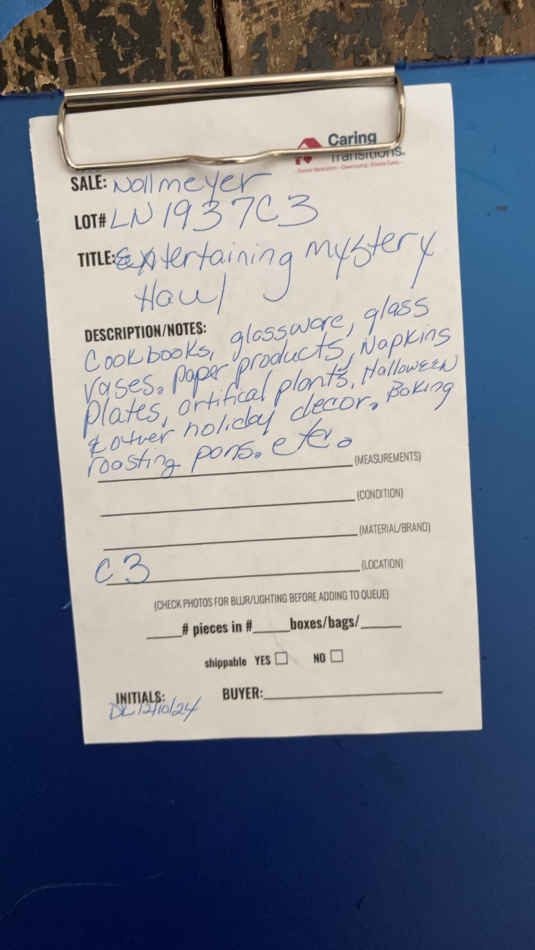 Caring
Transitions.
SALE: Nollmeyer
LOT# LN1937C3
TITLE: Entertaining Mystery
Haul
DESCRIPTION/NOTES:
Cookbooks, glassware, glass
Vases. Paper products, Napkins
Plates, artifical plants, Halloween
& other holiday decor. Baking
roasting pans. etc.
(MEASUREMENTS)
(CONDITION)
(MATERIAL/BRAND)
C3 (LOCATION)
(CHECK PHOTOS FOR BLUR/LIGHTING BEFORE ADDING TO QUEUE)
# pieces in # boxes/bags/
shippable YES NO
INITIALS: BUYER:
DL 12/10/24